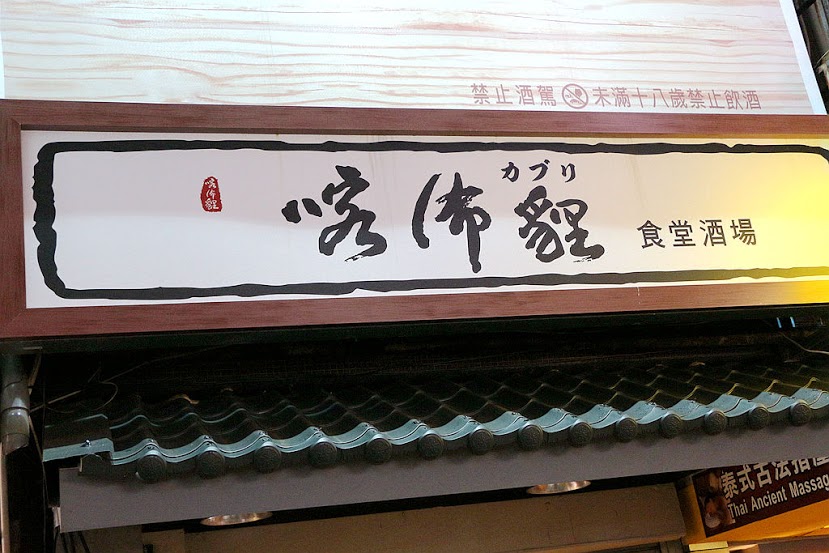 禁止酒駕 未滿十八歲禁止飲酒
カブリ
喀佈貍 食堂酒場
喀佈貍
泰式古法指
Thai Ancient Massag